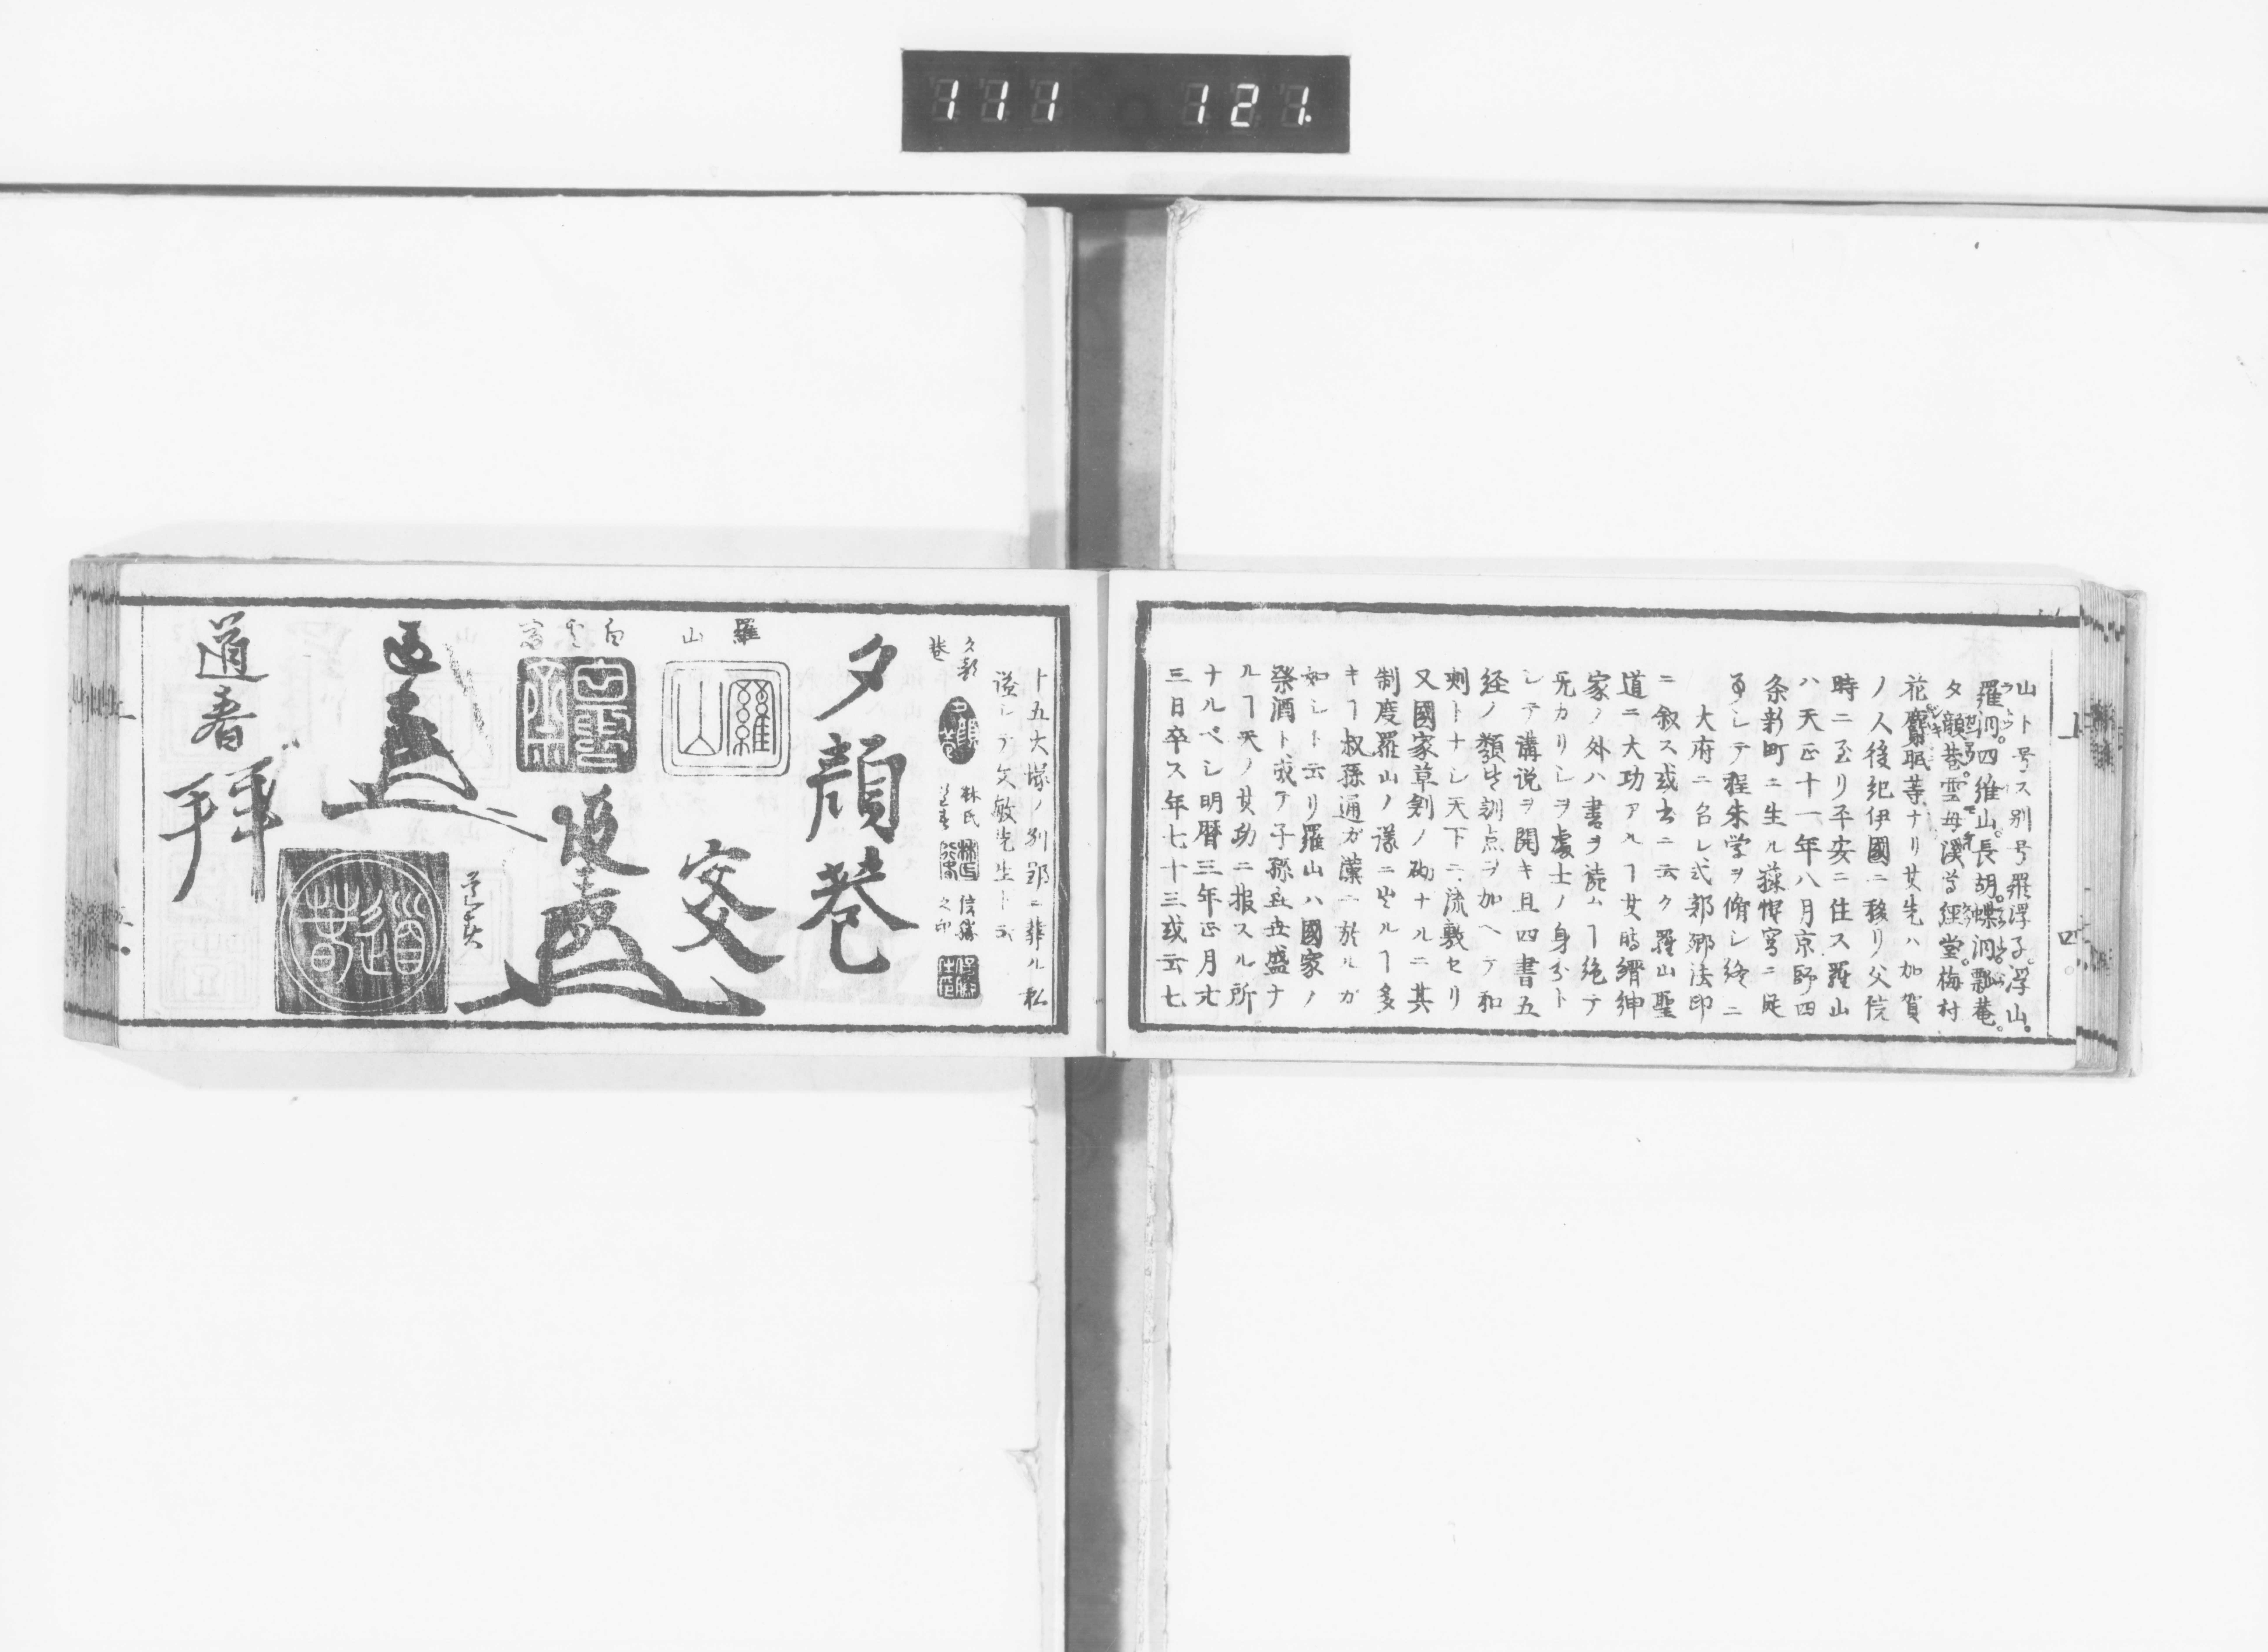 111 121.
山ト号ス別号羅浮子。浮山。
羅洞。四維山。長胡蝶洞。瓢菴。
夕顔巷。雲母溪。尊經堂。梅村
花。麝眠等ナリ其先ハ加賀
ノ人後紀伊國ニ移リ父信
時ニ至リ平安ニ住ス羅山
ハ天正十一年八月京師四
条新町ニ生ル藤惺窩ニ従
事シテ程朱学ヲ脩シ終ニ
大府ニ召レ式部卿法印
ニ叙ス或書ニ云ク羅山聖
道ニ大功アルヿ其時縉紳
家ノ外ハ書ヲ読ムヿ絶テ
无カリシヲ處士ノ身分ト
シテ講説ヲ開キ且四書五
経ノ類皆訓点ヲ加ヘテ和
則トナシ天下ニ流敷セリ
又國家草創ノ砌ナルニ其
制度羅山ノ議ニ出ルヿ多
キヿ叔孫通ガ漢ニ於ルガ
如シト云リ羅山ハ國家ノ
祭酒ト成テ子孫益盛ナ
ルヿ天ノ其功ニ報スル所
ナルベシ明暦三年正月廿
三日卒ス年七十三或云七
十五大塚ノ別邸ニ葬ル私
諡シテ文敏先生ト云
夕顔
巷
林氏
道春
信勝
之印
夕顔巷
羅
山
羅山
白雲窩
道春
道春
道春拜
上
四